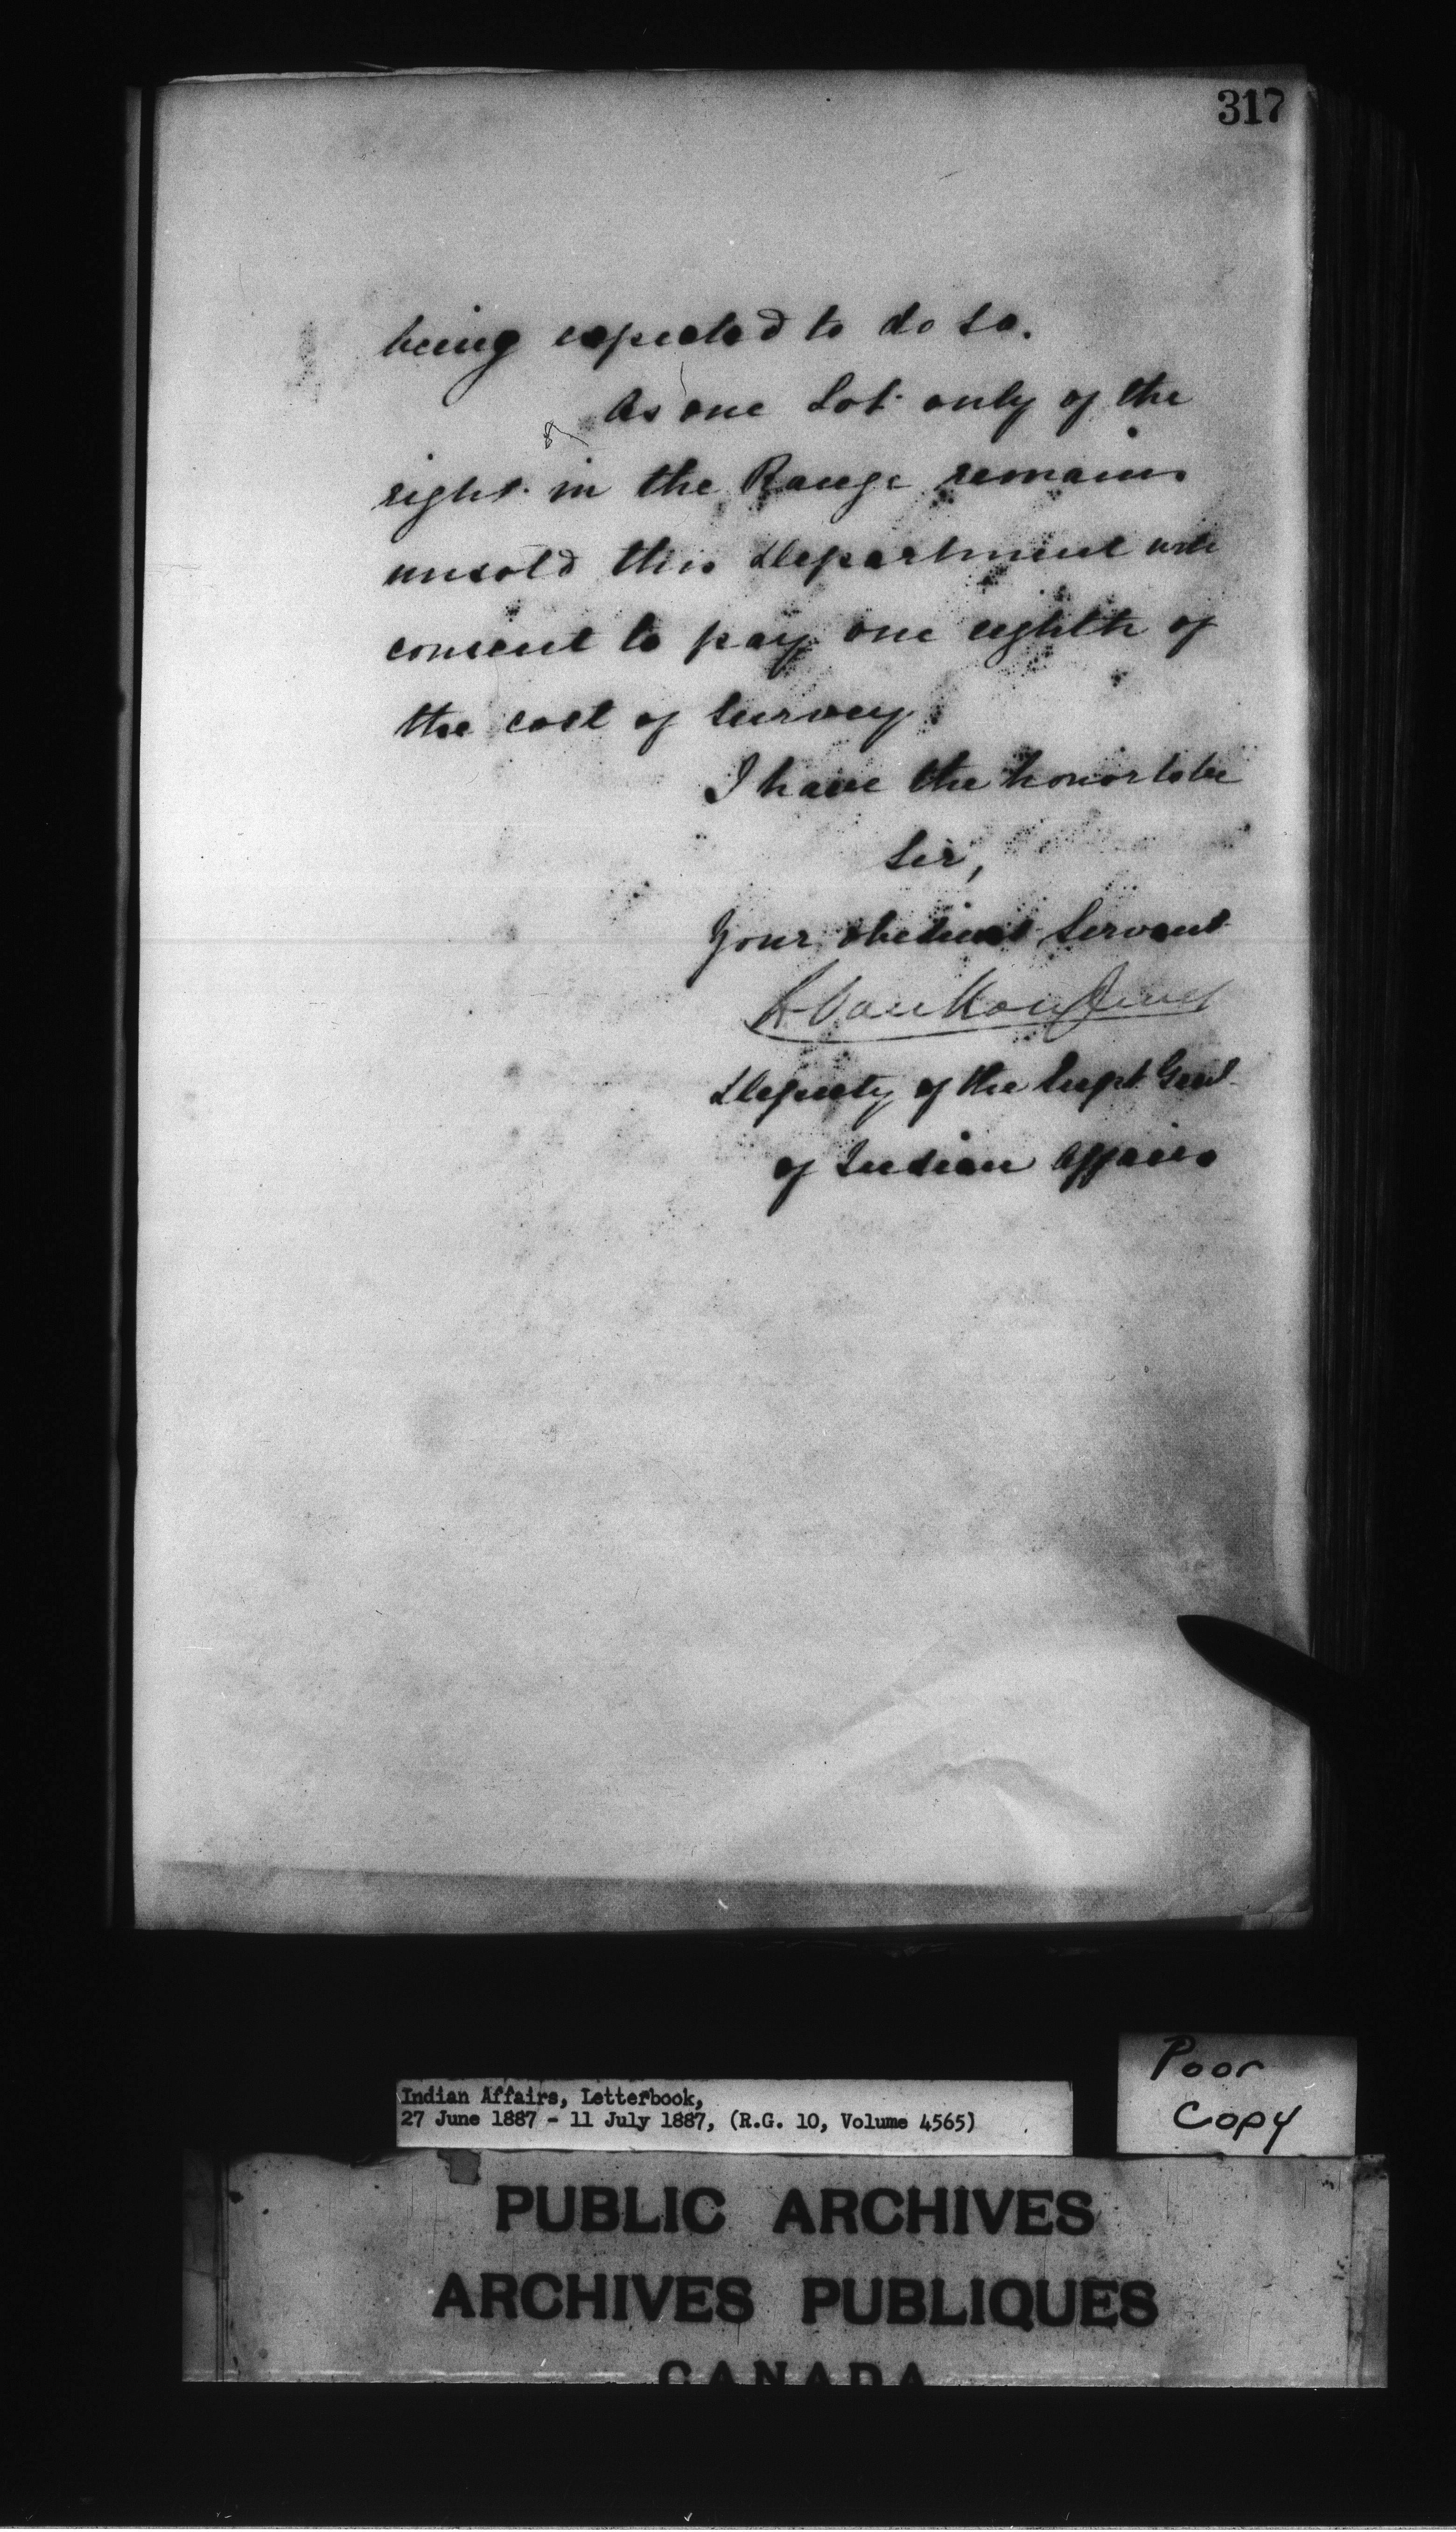 317
being expected to do so.
As one Lot only of the
eight in the Range remains
unsold this Department will
consent to pay one eighth of
the cost of Survey.
I have the honor to be
Sir,
Your obedient Servant
L. VanKoughnet
Deputy of the Supt. Genl.
of Indian Affairs
Poor
Copy
Indian Affairs, Letterbook,
27 June 1887 - 11 July 1887, (R.G. 10, Volume 4565)
PUBLIC ARCHIVES
ARCHIVES PUBLIQUES
CANADA